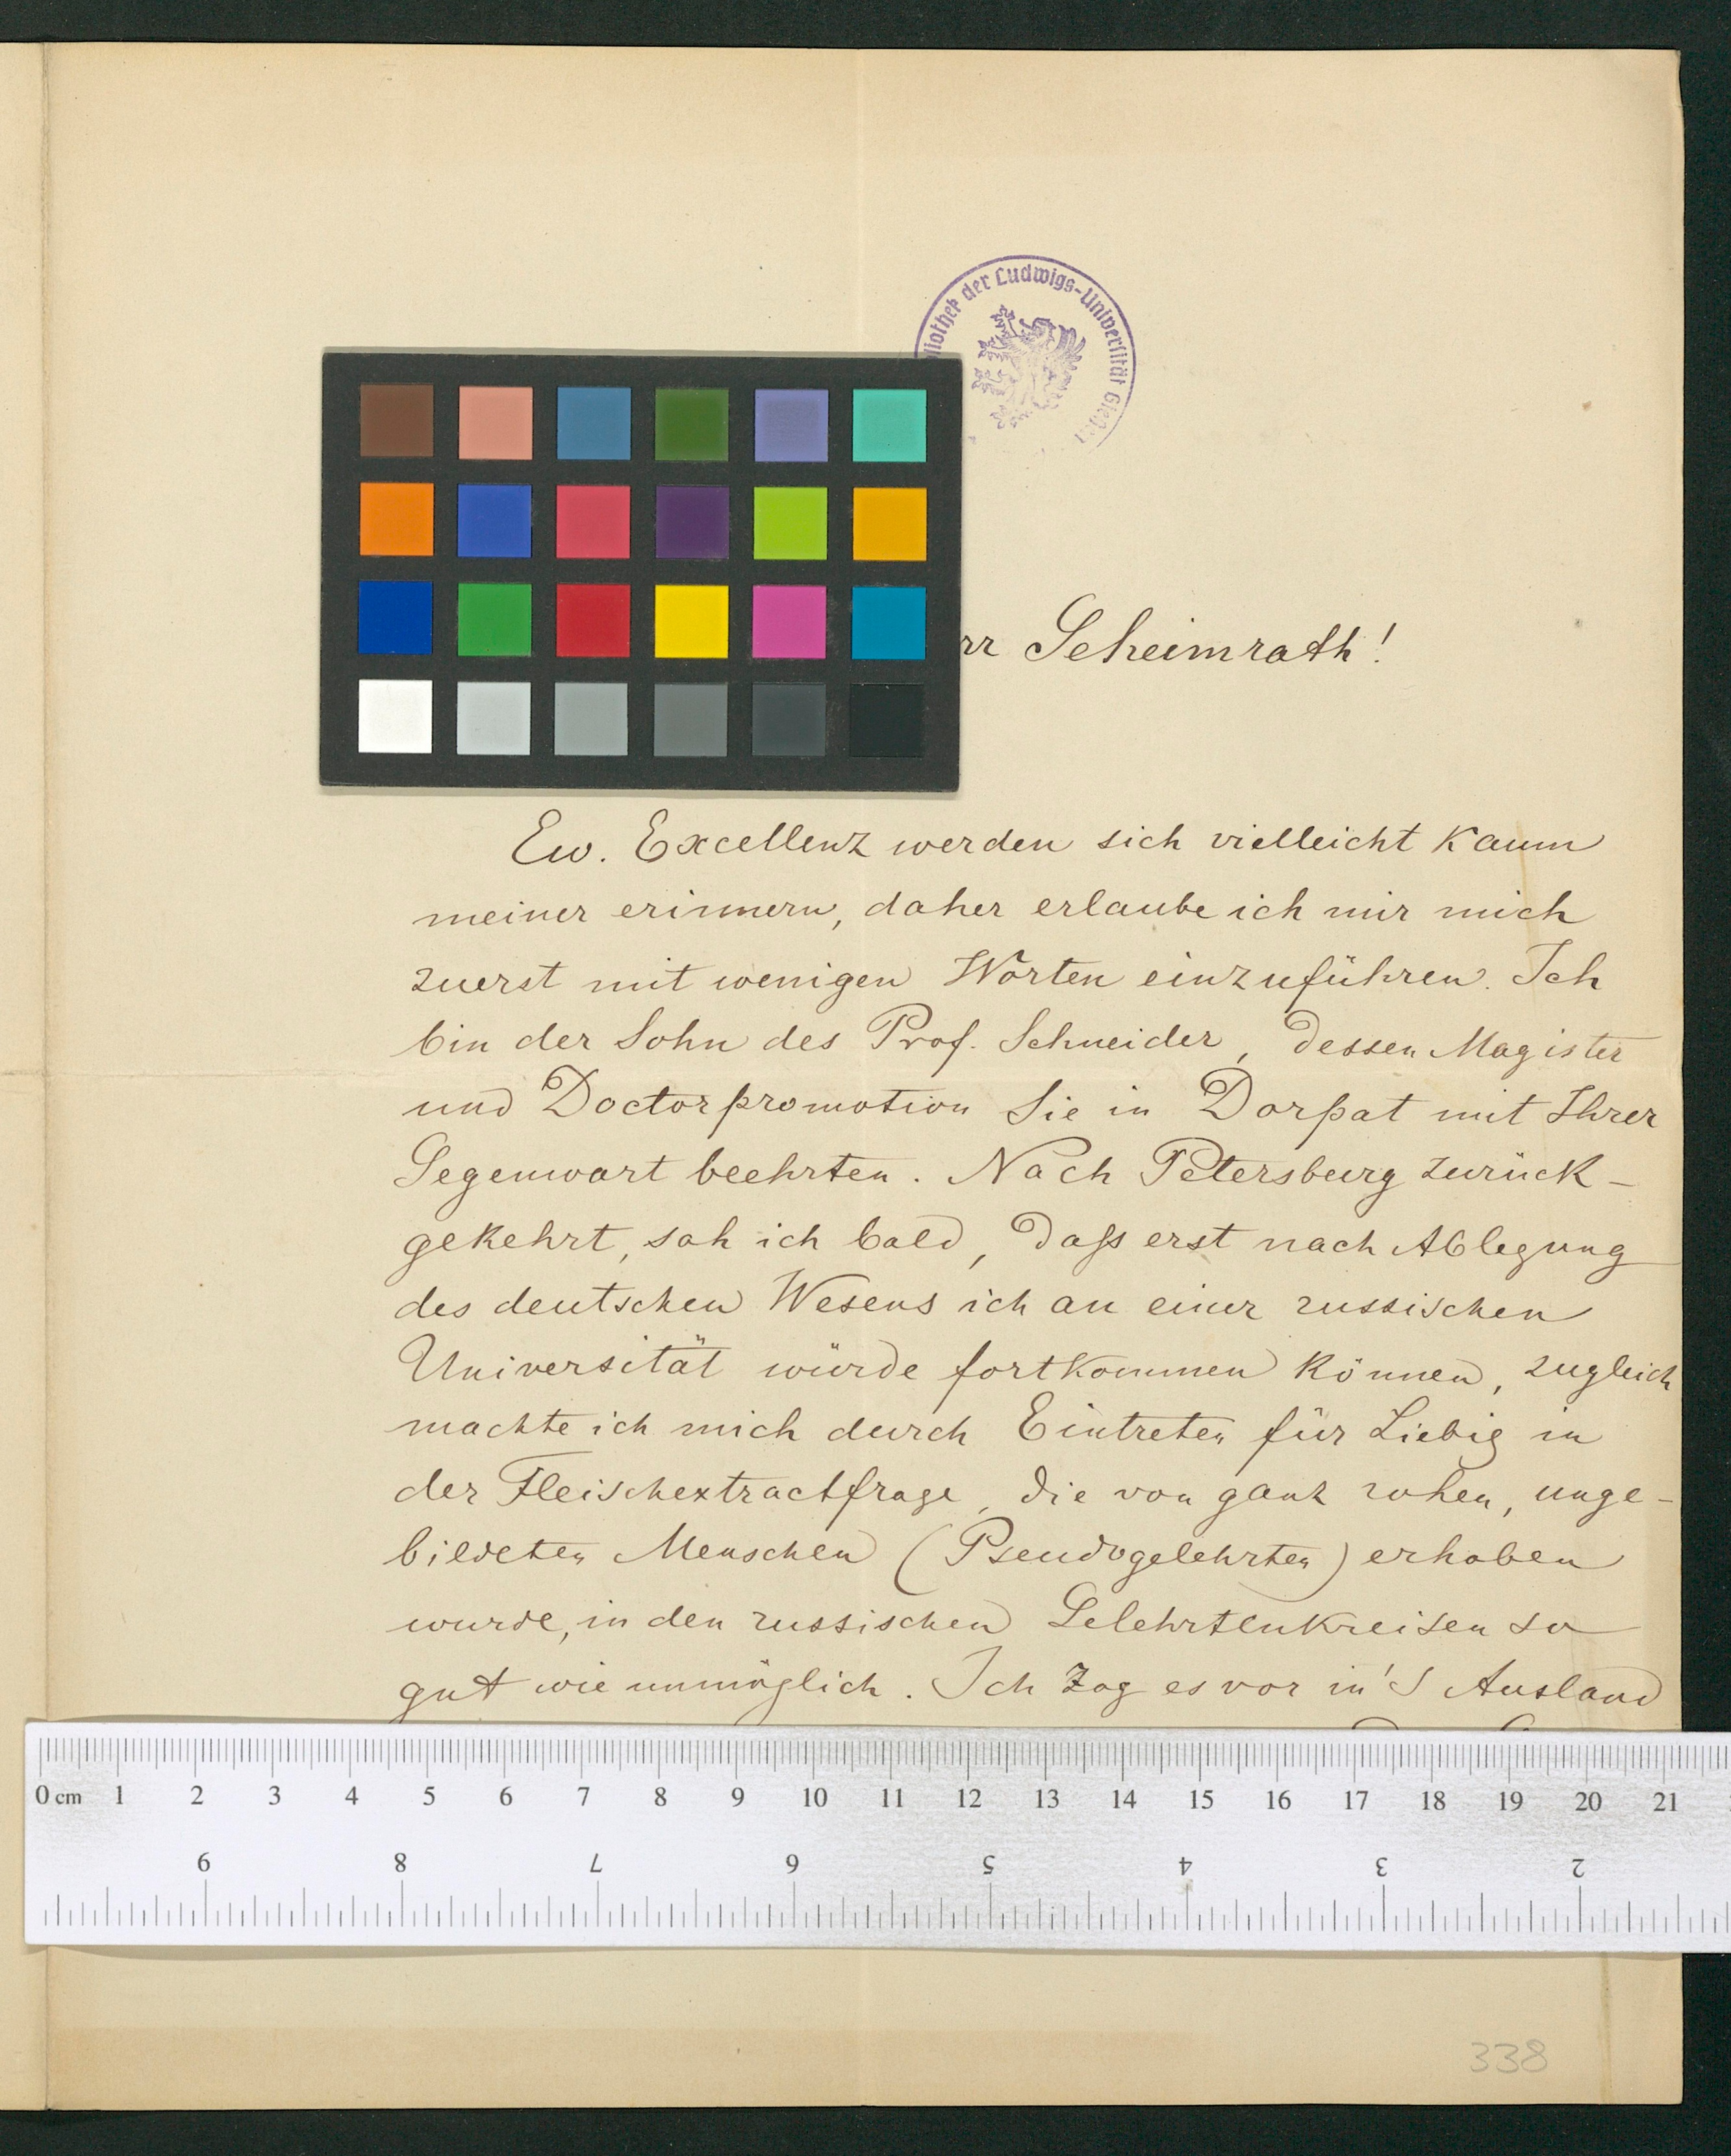 liothek der Ludwigs-Universität Gießen
rr Geheimrath!
Ew. Excellenz werden sich vielleicht kaum
meiner erinnern, daher erlaube ich mir mich
zuerst mit wenigen Worten einzuführen. Ich
bin der Sohn des Prof. Schneider, dessen Magister
und Doctorpromotion Sie in Dorpat mit Ihrer
Gegenwart beehrten. Nach Petersburg zurück-
gekehrt, sah ich bald, daß erst nach Ablegung
des deutschen Wesens ich an einer russischen
Universität würde fortkommen können, zugleich
machte ich mich durch Eintreten für Liebig in
der Fleischextractfrage, die von ganz rohen, unge-
bildeten Menschen (Pseudogelehrten) erhoben
wurde, in den russischen Gelehrtenkreisen so
gut wie unmöglich. Ich zog es vor in's Ausland
0 cm 1 2 3 4 5 6 7 8 9 10 11 12 13 14 15 16 17 18 19 20 21
9 8 7 6 5 4 3 2
338